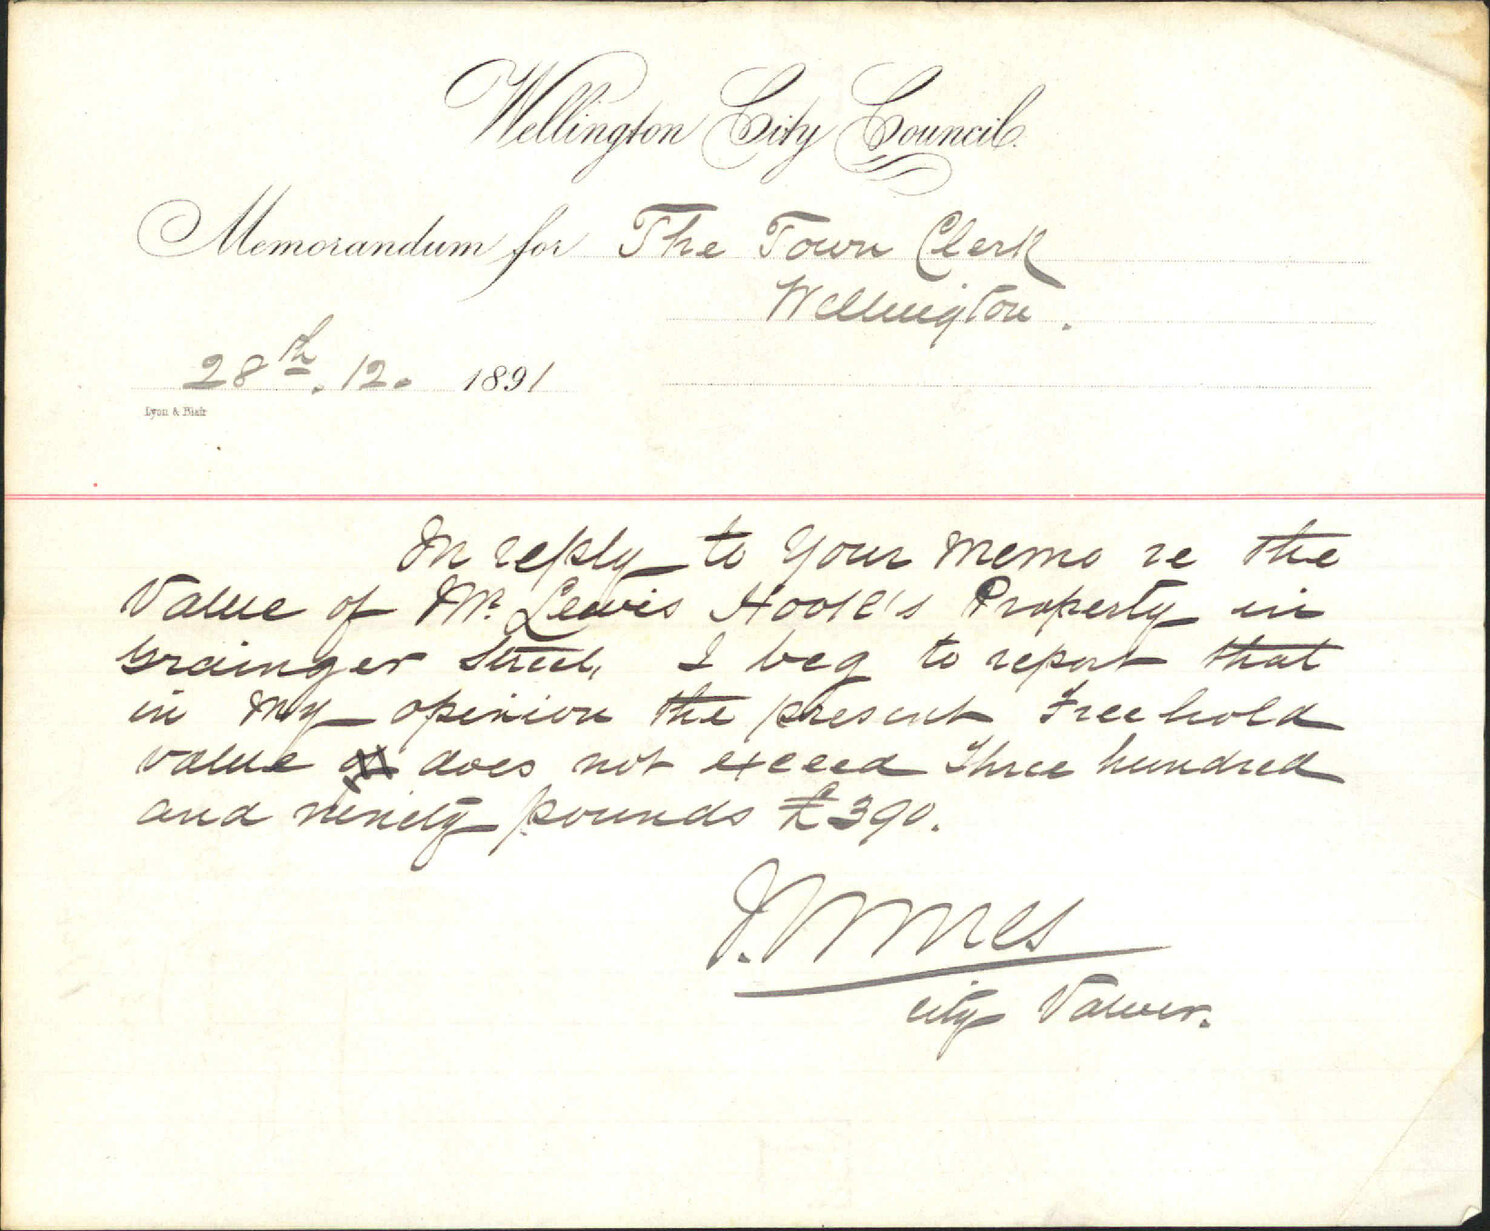 Wellington City Council.
Memorandum for The Town Clerk
Wellington.
28th. 12. 1891
Lyon & Blair
In reply to your memo re the
Value of Mr. Lewis Hook's Property in
Grainger Street, I beg to report that
in my opinion the present Freehold
value does not exceed Three hundred
and ninety pounds £390.
City Valuer.